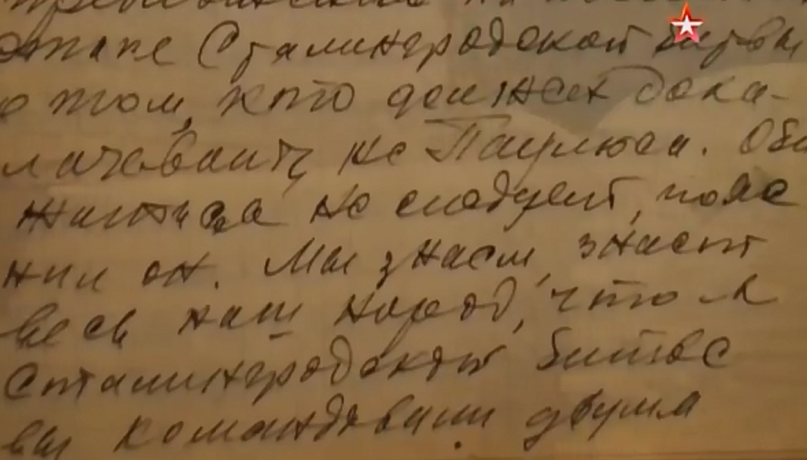 этапе Сталинградской битвы
о том, кто должен дока-
лачивать не Паулюса. Оби
жаться не следует, пояс
нил он. Мы знаем, знает
весь наш народ, что в
Сталинградской битве
вы командовали двумя